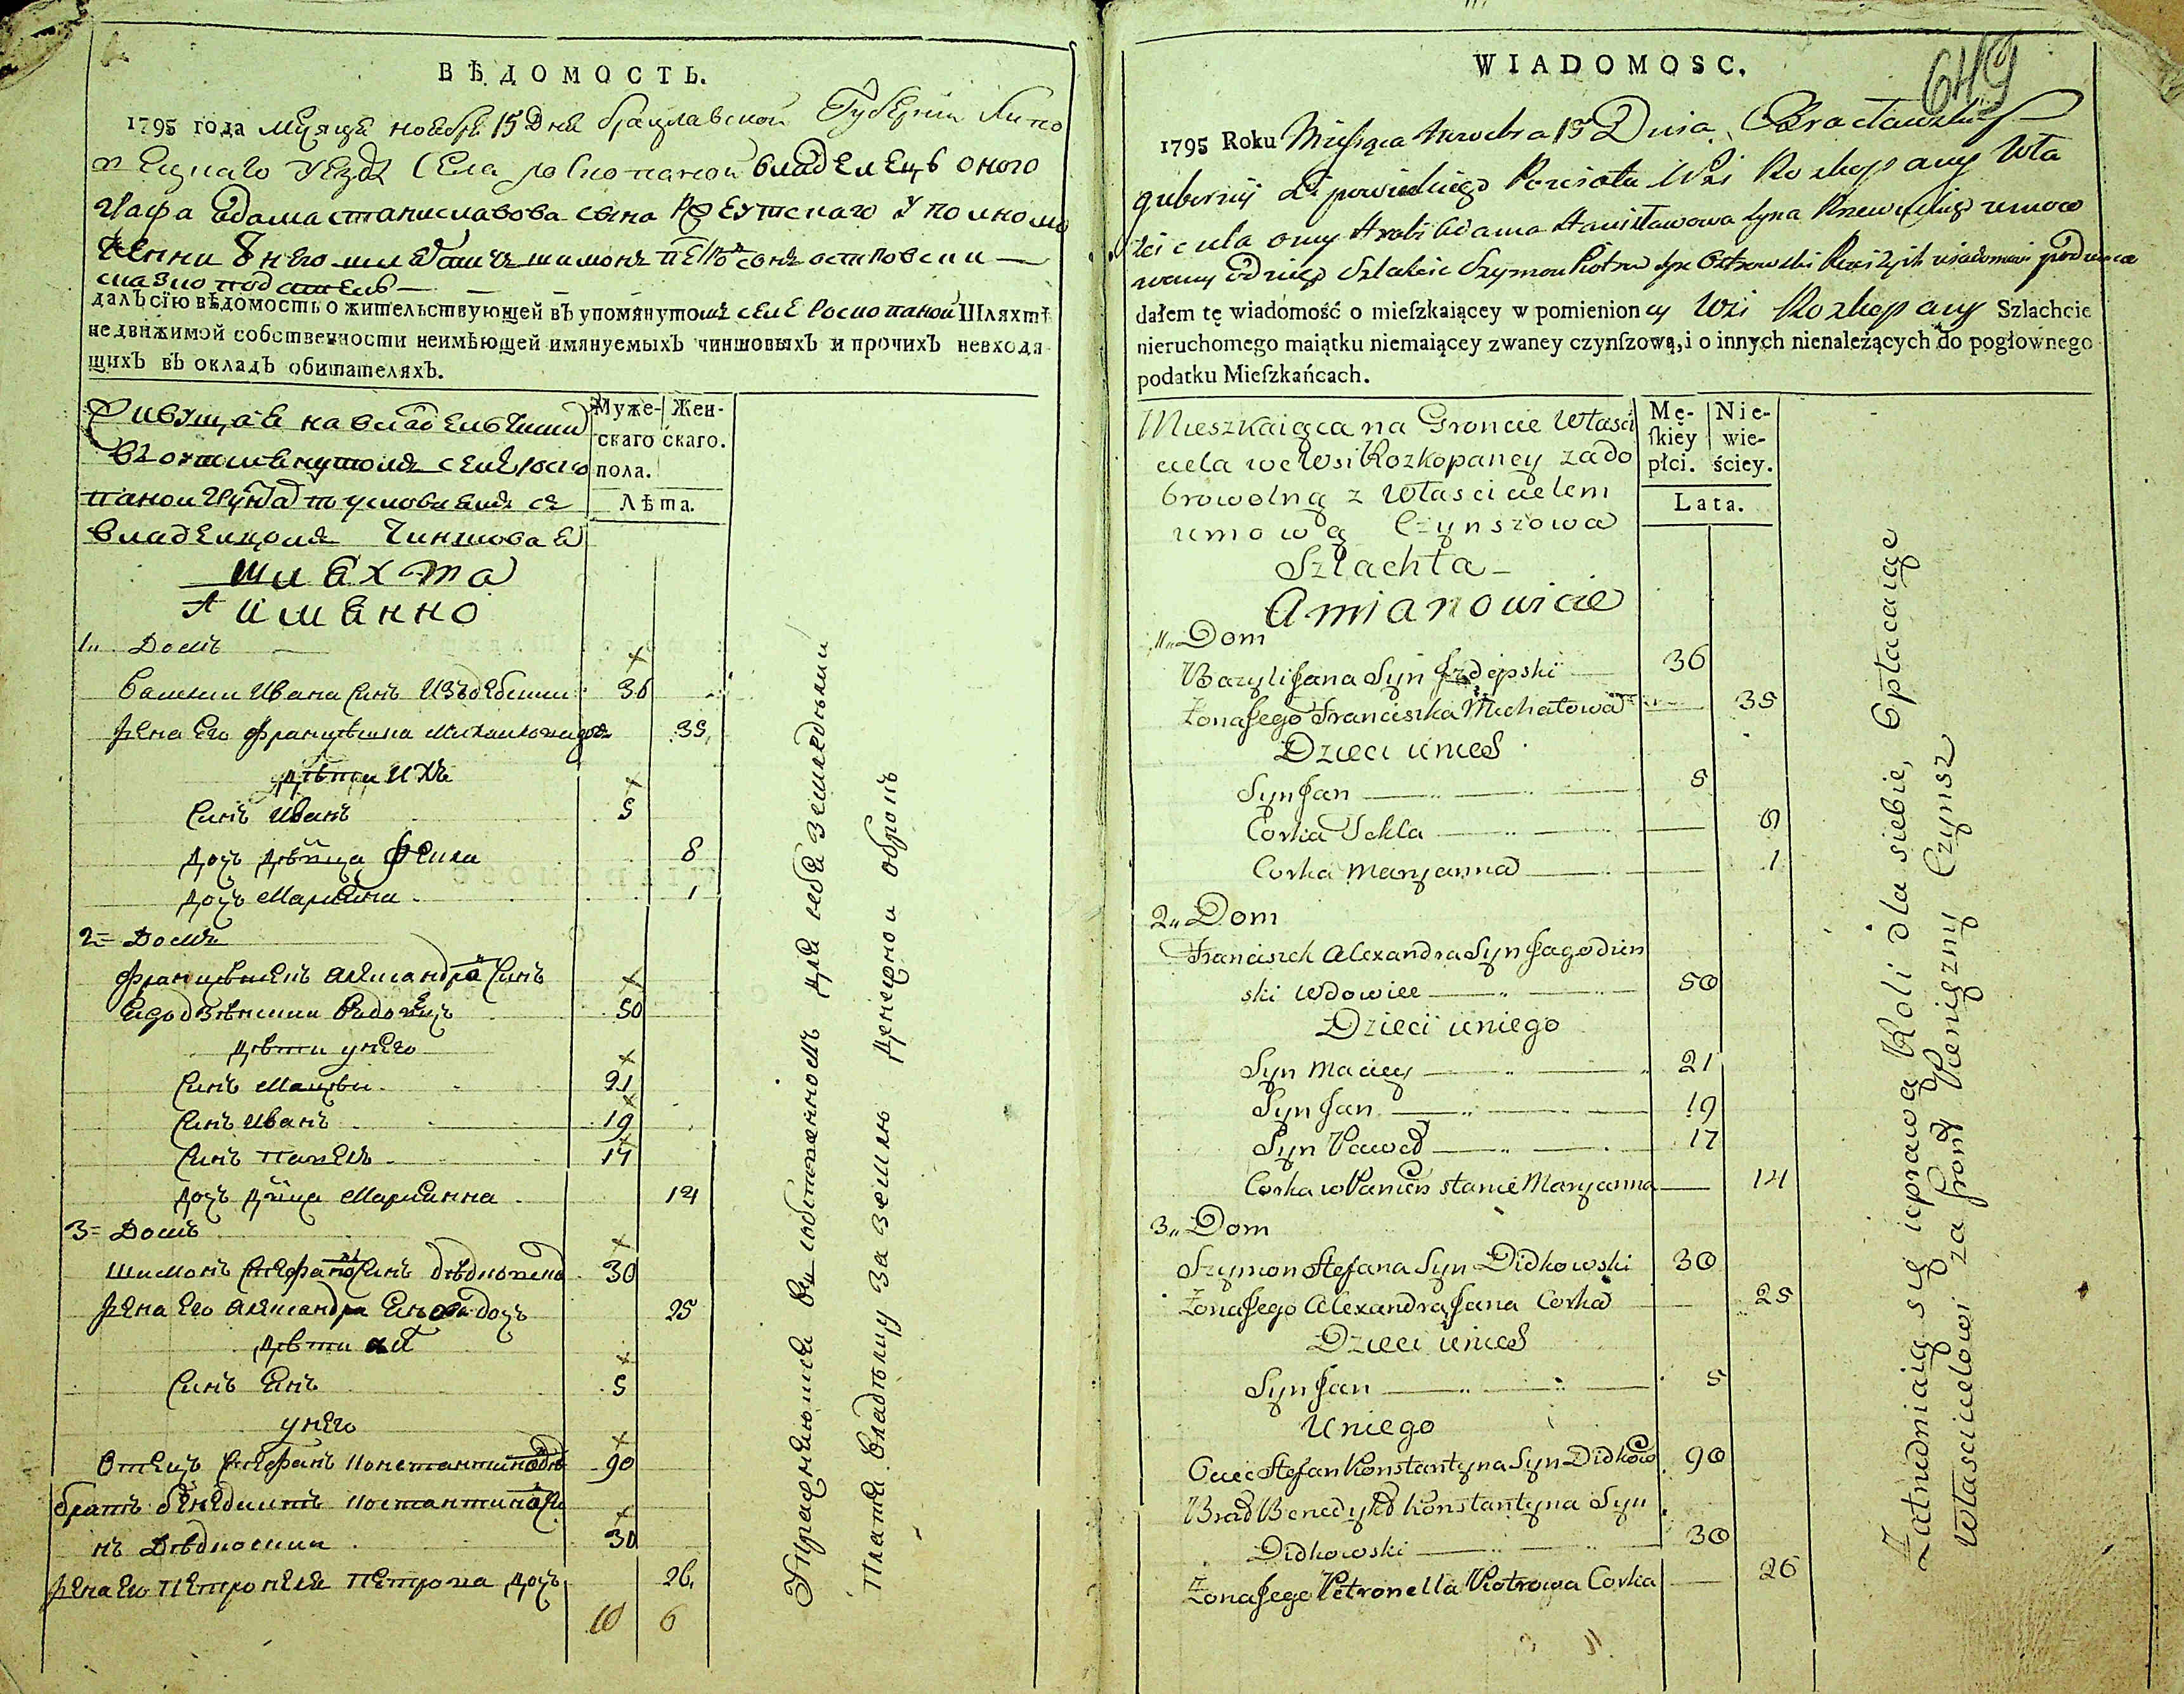 ВѢДОМОСТЬ.
1795 года Мѣсяца ноября 15 Дня Брацлавской Губернии Липо
вецкаго Уезда Села Роскопаной владелецъ оного
Графа Адама Станиславова сына Ржевуского Уполномо
ченни
даль сїю вѣдомость о жительствующей въ упомянутомъ селе Роскопаной Шляхтѣ
недвижимой собственности неимѣющей имянуемыхЪ чиншовыхЪ и прочихЪ невходя-
щихЪ въ окладЪ обитателяхЪ.
Муже- Жен-
скаго скаго.
пола.
Лѣта.
Живущая на владельчом
в
паной грунта по условиям съ
владельцомъ Чиншовая
шляхта
А имянно
1,, Домъ
Ивана синъ 36
Жена Его Францѣшка 35
Дѣти ихъ
Синъ Иванъ 5
Дочь дѣвица Фекла 8
Дочь Марияна 1
2= Домъ
Францѣшекъ Александра Синъ
Ягодзѣнский вдовецъ 50
Дѣти у него
Синъ Мацѣй 21
Синъ Иванъ 19
Синъ Павелъ 17
Дочь дѣвица Марианна 14
3= Домъ
Шимонъ Стефана Синъ 30
Жена Его Александра Яна дочь 25
Дѣти
Синъ Янъ 5
у него
Отецъ Стефанъ Константина 90
братъ Бенедиктъ Костантина Си
нъ Дѣдковский 30
Жена Его Петронеля Петрова дочь 26
10 6
Упражняются для себя земледелием
платя владельцу за землю денежной оброкъ
WIADOMOSC.
649
1795 Roku Miesiąca Nowebra 15 Dnia Bracławskiey
gubernij Lipowieckiego Powiatu Wsi Rozkopany Wła
sciciela oney Hrabi Adama Stanisławowa Syna Rzewuskiego umoco
wany od niego Szlachcic Szymon Piotra Syn Ostrowski
dałem tę wiadomość o mieſzkaiącey w pomienioney Wsi Rozkopany Szlachcie
nieruchomego maiątku niemaiącey zwaney czynſzową, i o innych nienależących do pogłownego
podatku Mieſzkańcach.
Mę- Nie-
ſkiey wie-
płci. ściey.
Lata.
Mieszkaiąca na Groncie Własci
ciela we Wsi Rozkopaney za do
browolną z Włascicielem
umową Czynszowa
Szlachta
Amianowicie
1,, Dom
Bazyli Jana Syn 36
Żona Jego Franciszka Michałowa 35
Dzieci unich
Syn Jan 5
Corka Tekla 8
Corka Maryanna 1
2,, Dom
Franciszek Alexandra Syn Jagodzin
ski Wdowiec 50
Dzieci uniego
Syn Maciey 21
Syn Jan 19
Syn Paweł 17
Corka w Panień stanie Maryanna 14
3,, Dom
Szymon Stefana Syn Didkowski 30
Żona Jego Alexandra Jana Corka 25
Dzieci unich
Syn Jan 5
Uniego
Ociec Stefan Konstantyna Syn Didkow 90
Brat Benedykt Konstantyna Syn
Didkowski 30
Żona Jego Petronella Piotrowa Corka 26
Zatrudniaią się uprawą Roli dla siebie, Opłacaiąc
Włascicielowi za Gront Pieniężny Czynsz